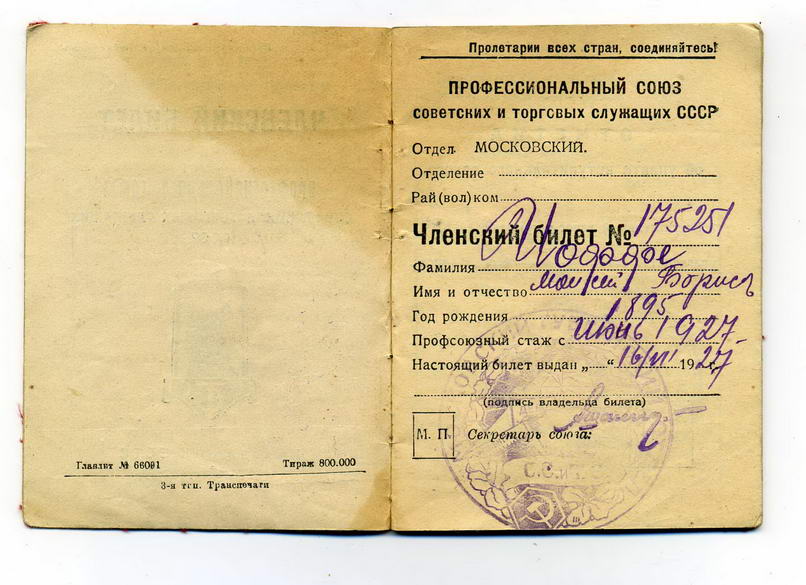 Главлит № 66091 Тираж 800.000
3-я тип. Транспечати
Пролетарии всех стран, соединяйтесь!
ПРОФЕССИОНАЛЬНЫЙ СОЮЗ
советских и торговых служащих СССР
Отдел МОСКОВСКИЙ.
Отделение
Рай(вол)ком
Членский билет № 175251
Фамилия
Имя и отчество Моисей Борисов
Год рождения 1895
Профсоюзный стаж с июнь 1927
Настоящий билет выдан „ “ 16/VI 1927 г.
(подпись владельца билета)
М. П. Секретарь союза: